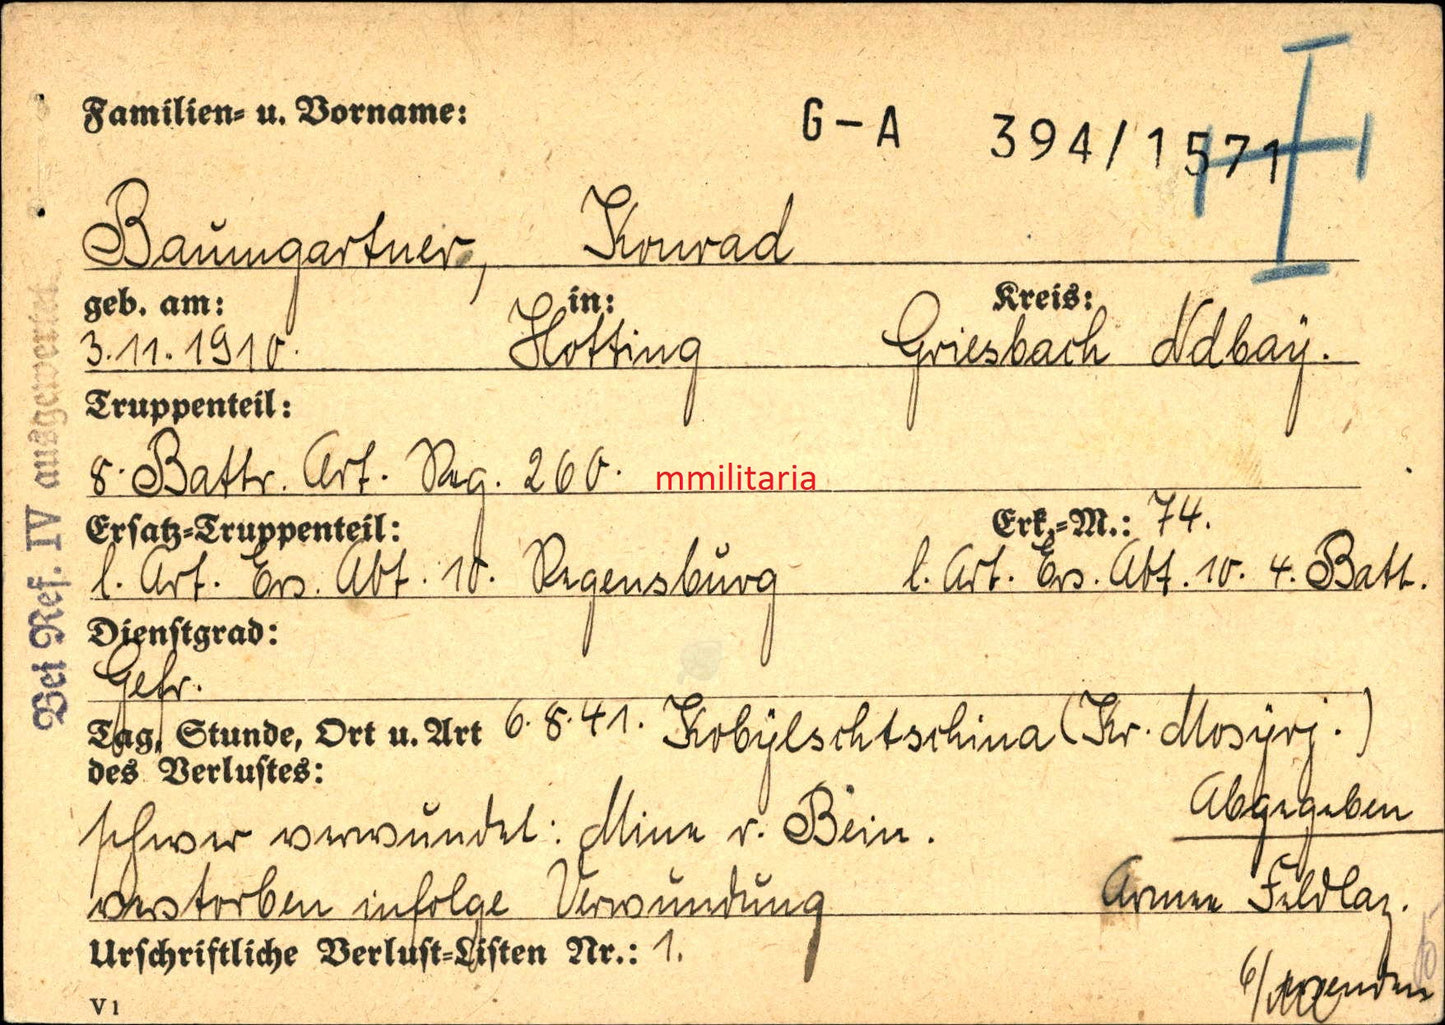 Familien- u. Vorname:
G-A 394/1571
Baumgartner, Konrad
geb. am: in: Kreis:
3.11.1910. Hotting Griesbach Ndbay.
Truppenteil:
8. Battr. Art. Reg. 260.
mmilitaria
Ersatz-Truppenteil: Erk.-M.: 74.
l. Art. Ers. Abt. 10. Regensburg l. Art. Ers. Abt. 10. 4. Batt.
Dienstgrad:
Gefr.
Tag, Stunde, Ort u. Art 6.8.41. Kobylschtschina (Kr. Mosyrj.)
des Verlustes:
Abgegeben
schwer verwundet: Mine r. Bein.
verstorben infolge Verwundung Armee Feldlaz.
Urschriftliche Verlust-Listen Nr.: 1.
6/ wenden
V 1
Bei Ref. IV ausgewertet